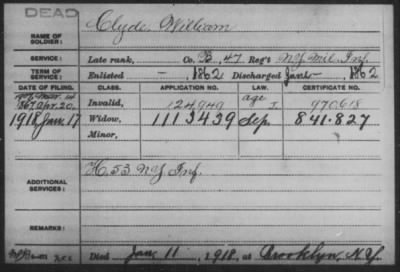 DEAD
Clyde, William
NAME OF SOLDIER:
SERVICE: Late rank, Co. B, 47 Reg't N.Y. Mil. Inf.
TERM OF SERVICE: Enlisted - 1862 Discharged - 1862
DATE OF FILING. CLASS. APPLICATION NO. LAW. CERTIFICATE NO.
1867 Apr. 20, Invalid, 124949 age 970618
1918 Jan. 17 Widow, 1113439 Sep 841.827
Minor,
ADDITIONAL SERVICES: H. 53 N.Y. Inf.
REMARKS:
Died Jan 11, 1918, at Brooklyn, N.Y.